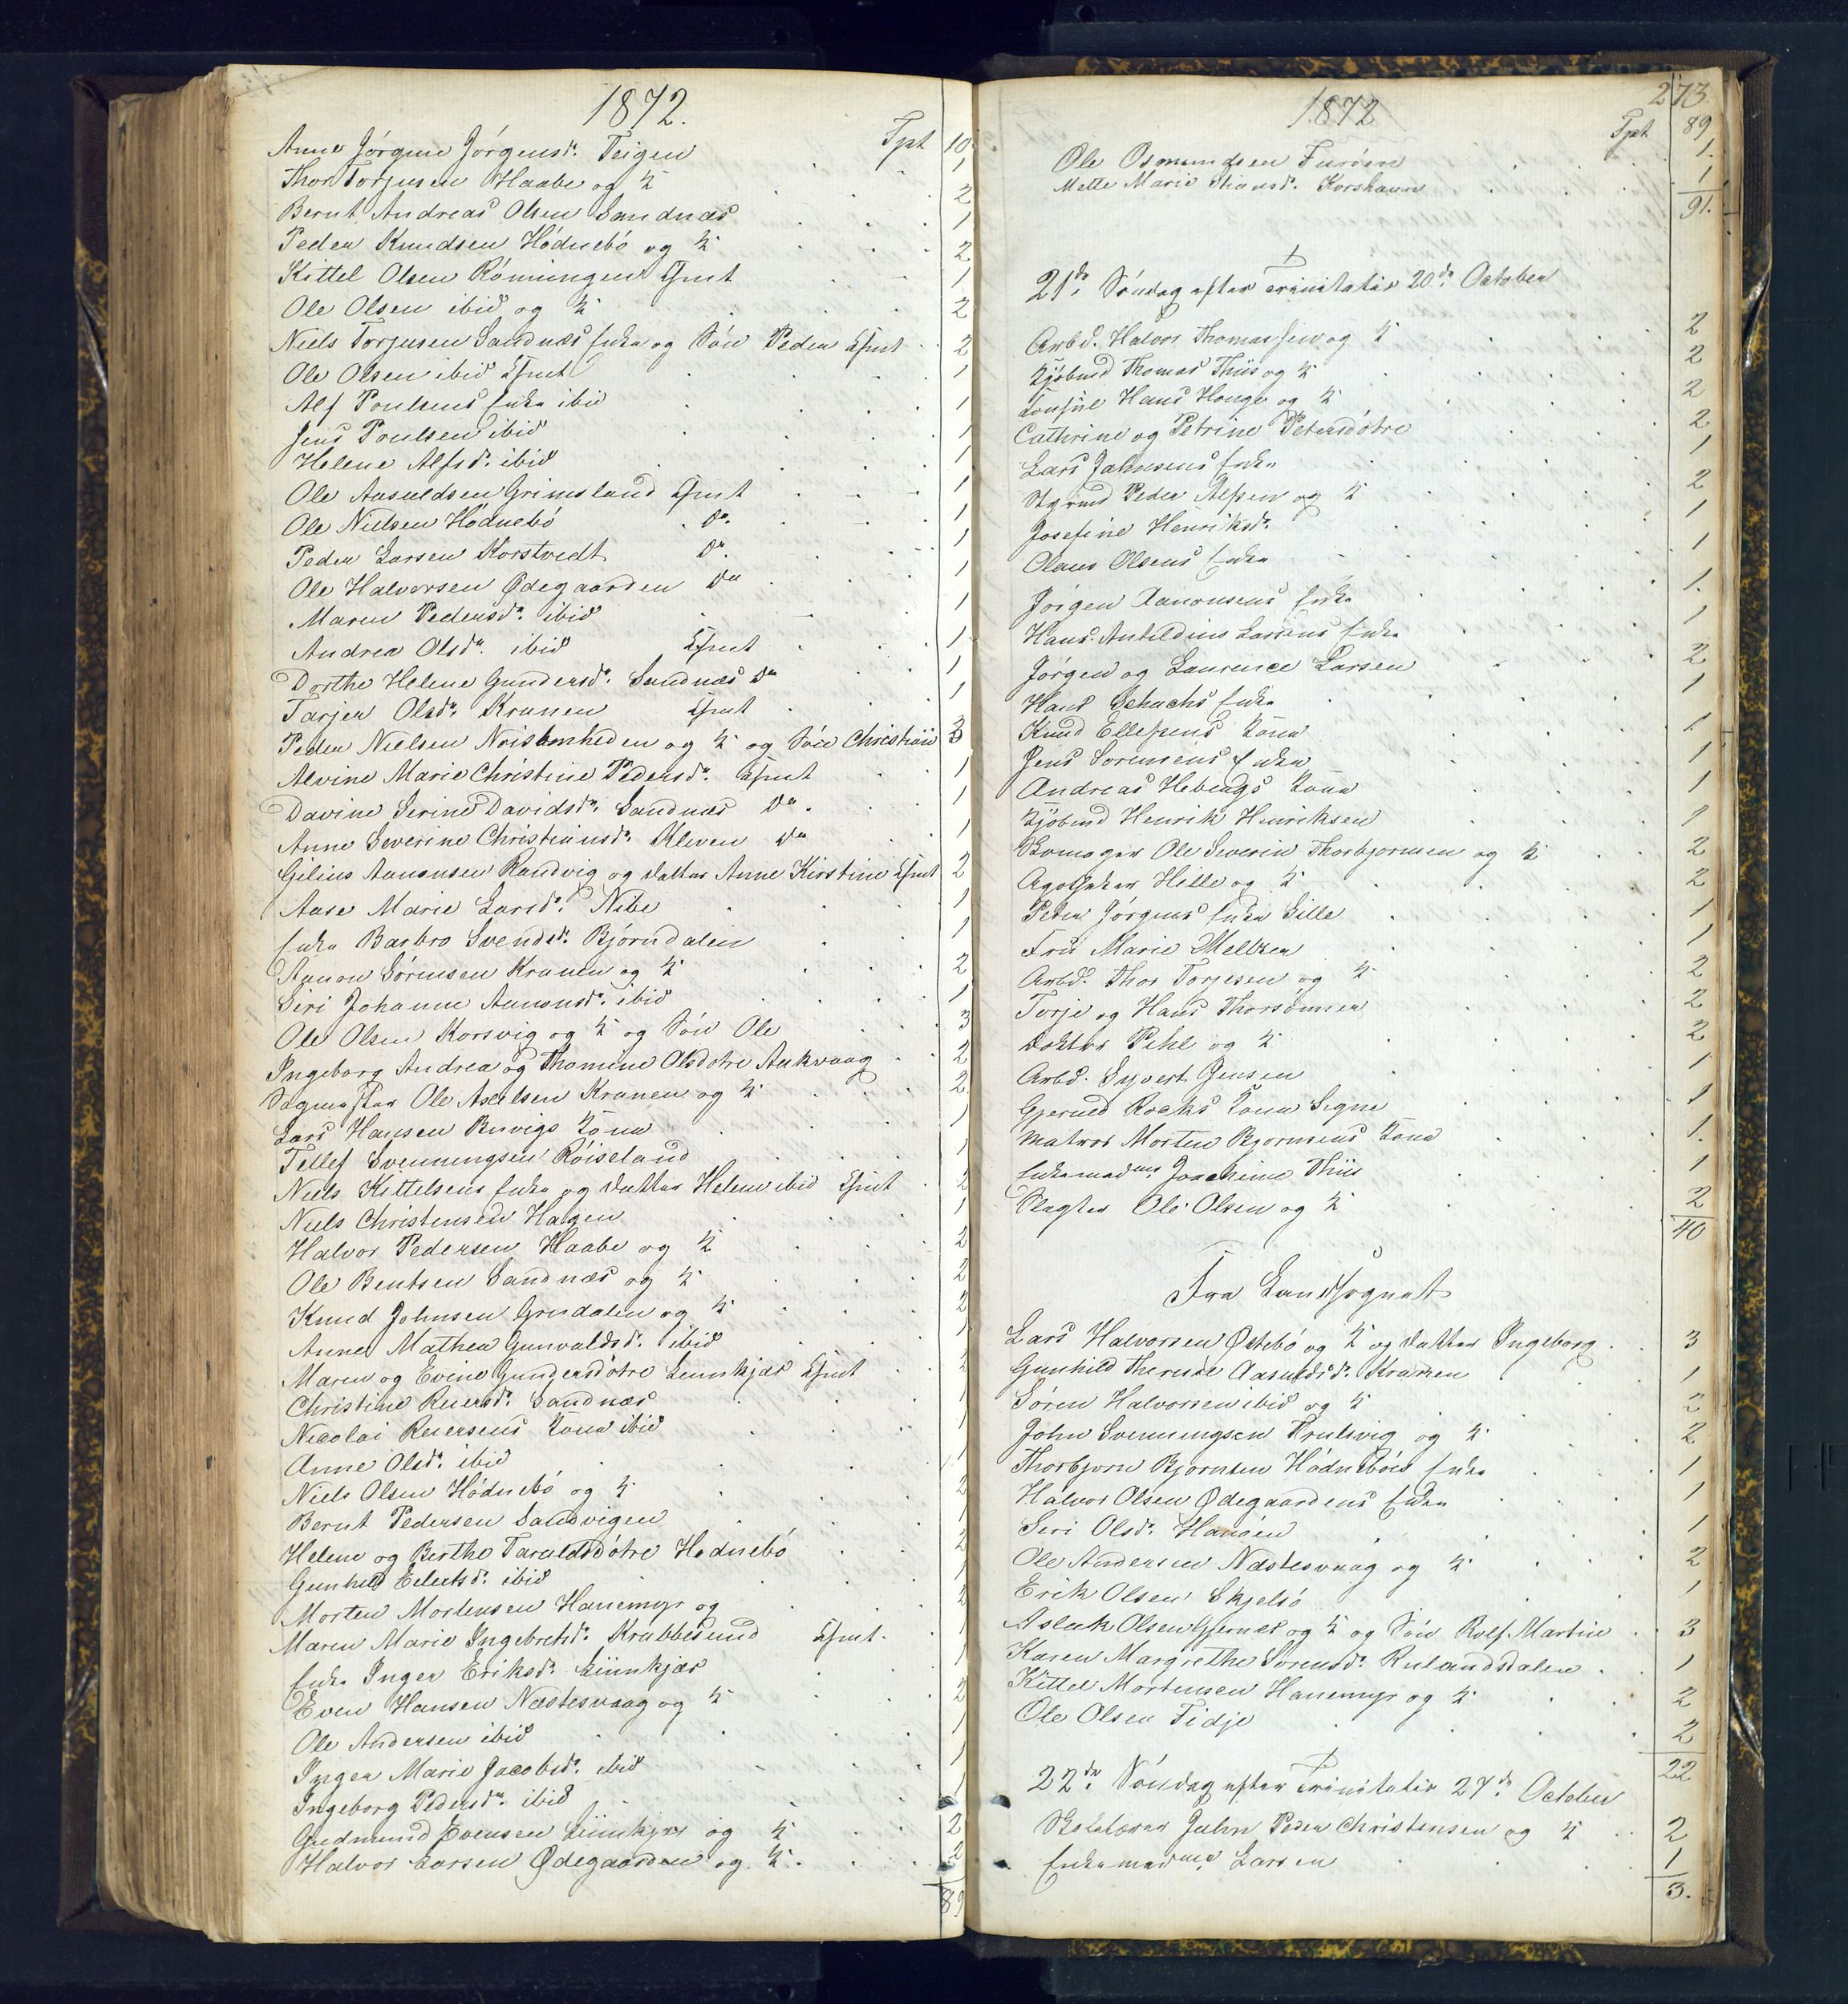 1872.
Tpt 10
Anne Jórgine Jórgensdr. Teigen 1
Thor Torjusen Haabe og K 2
Bernt Andreas Olsen Sandnæs 1
Peder Knudsen Hódnebó og K 2
Kittel Olsen Rómingen Gmt 1
Ole Olsen ibid og K 2
Niels Torjusen Sandnæs Enke og Són Peder 2
Ole Olsen ibid 1
Alf Poulsens Enke ibid 1
Jens Poulsen ibid 1
Helene Alfsdr. ibid 1
Ole Aasuldsen Grimsland 1
Ole Nielsen Hódnebó do. 1
Peder Larsen Korstvedt do. 1
Ole Halvorsen Ødegaarden do 1
Maren Pedersdr. ibid 1
Andrea Olsdr. ibid 1
Dorthe Helene Gundersdr. Sandnæs do 1
Tarjer Olsdr. Kranen 1
Peder Nielsen og K og Són Christian 3
Alvine Marie Christine Pedersdr. 1
Davine Serine Davidsdr. Sandnæs do. 1
Anne Severine Christiansdr. Kleven do 1
Gilius Aanonsen Randvig og datter Anne Kirstine 2
Aase Marie Larsdr. Nibe 1
Enke Barbro Svendsdr. Bjórndalen 1
Aanon Sórensen Kranen og K 2
Siri Johanne Aanonsdr. ibid 1
Ole Olsen Korsvig og K og Són Ole 3
Ingeborg Andrea og Thomine Olsdótre Aakvaag 2
Ole Axelsen Kranen og K 2
Lars Hansen Buvigs Kone 1
Tellef Svenningsen Róiseland 1
Niels Kittelsens Enke og datter Helene ibid 2
Niels Christensen Hagen 1
Halvor Pedersen Haabe og K 2
Ole Bentsen Sandnæs og K 2
Knud Johnsen Grusdalen og K 2
Anne Mathea Gunvaldsdr. ibid 1
Maren og Evine Gundersdótre Lunnkjær 2
Christine Reiersdr. Sandnæs 1
Nicolai Reiersens Kone ibid 1
Anne Olsdr. ibid 1
Niels Olsen Hódnebó og K 2
Bernt Pedersen Sandvigen 1
Helene og Berthe Taraldsdótre Hódnebó 2
Gunhild Eilertsdr. ibid 1
Morten Mortensen Hanemyr og 2
Maren Marie Ingebretsdr. Krabbesund 1
Enke Inger Eriksdr. Lunnkjær 1
Even Hansen Næstesvaag og K 2
Ole Andersen ibid 1
Inger Marie Jacobsdr. ibid 1
Ingeborg Pedersdr. ibid 1
Gudmund Evensen Lunnkjær og K 2
Halvor Larsen Ødegaarden og K 2
89
273.
1872
Tpt 89
Ole Osmundsen Furóen 1.
Mette Marie Korshavn 1
91.
21de Søndag efter Trinitatis 20de October
Arbd. Halvor Thomassen og K 2
Kjóbmd Thomas Thiis og K 2
Consul Hans Houge og K 2
Cathrine og Petrine Petersdótre 2
Lars Johnsens Enke 1
Peder og K 2
Josefine Henriksdr. 1
Olaus Olsens Enke 1
Jórgen Aanonsens Enke 1.
Hans Larsens Enke 1
Jørgen og Laurence Larsen 2
Hans Schachs Enke 1
Knud Ellefsens Kone 1
Jens Sorensens Enke 1
Andreas Kone 1
Kjóbmd Henrik Henriksen 1
Skomager Ole Severin Thorbjornsen og K 2
Apotheker Hille og K 2
Peder Jórgens Enke 1
Fru Marie 1
Arbd. Thor Torjesen og K 2
Torje og Hans Thorsónner 2
Doktor og K 2
Arbd. Syvert Jensen 1
Kone Signe 1
Matros Morten Bjornsens Kone 1.
Enkemadme Joachime Thiis 1
Slagter Ole Olsen og K 2
40
Fra Landsognet
Lars Halvorsen Østebó og K og datter Ingeborg 3
Gunhild Therese Aasuldsdr. Kranen 1
Sóren Halvorsen ibid og K 2
John Svenningsen og K 2
Thorbjorn Bjornsen Hódnebós Enke 1
Halvor Olsen Ødegaardens Enke 1
Siri Olsdr. Hanóen 1
Ole Andersen Næstesvaag og K 2
Erik Olsen Skjelsó 1
Aslak Olsen Gjernæs og K og Són Rolf Martin 3
Karen Margrethe Sorensdr. Rulandsdalen 1
Kittel Mortensen Hanemyr og K 2
Ole Olsen Fidje 2
22
22de Søndag efter Trinitatis 27de October
Skolelærer Jahn Peder Christensen og K 2
Enkemadme Larsen 1
3.